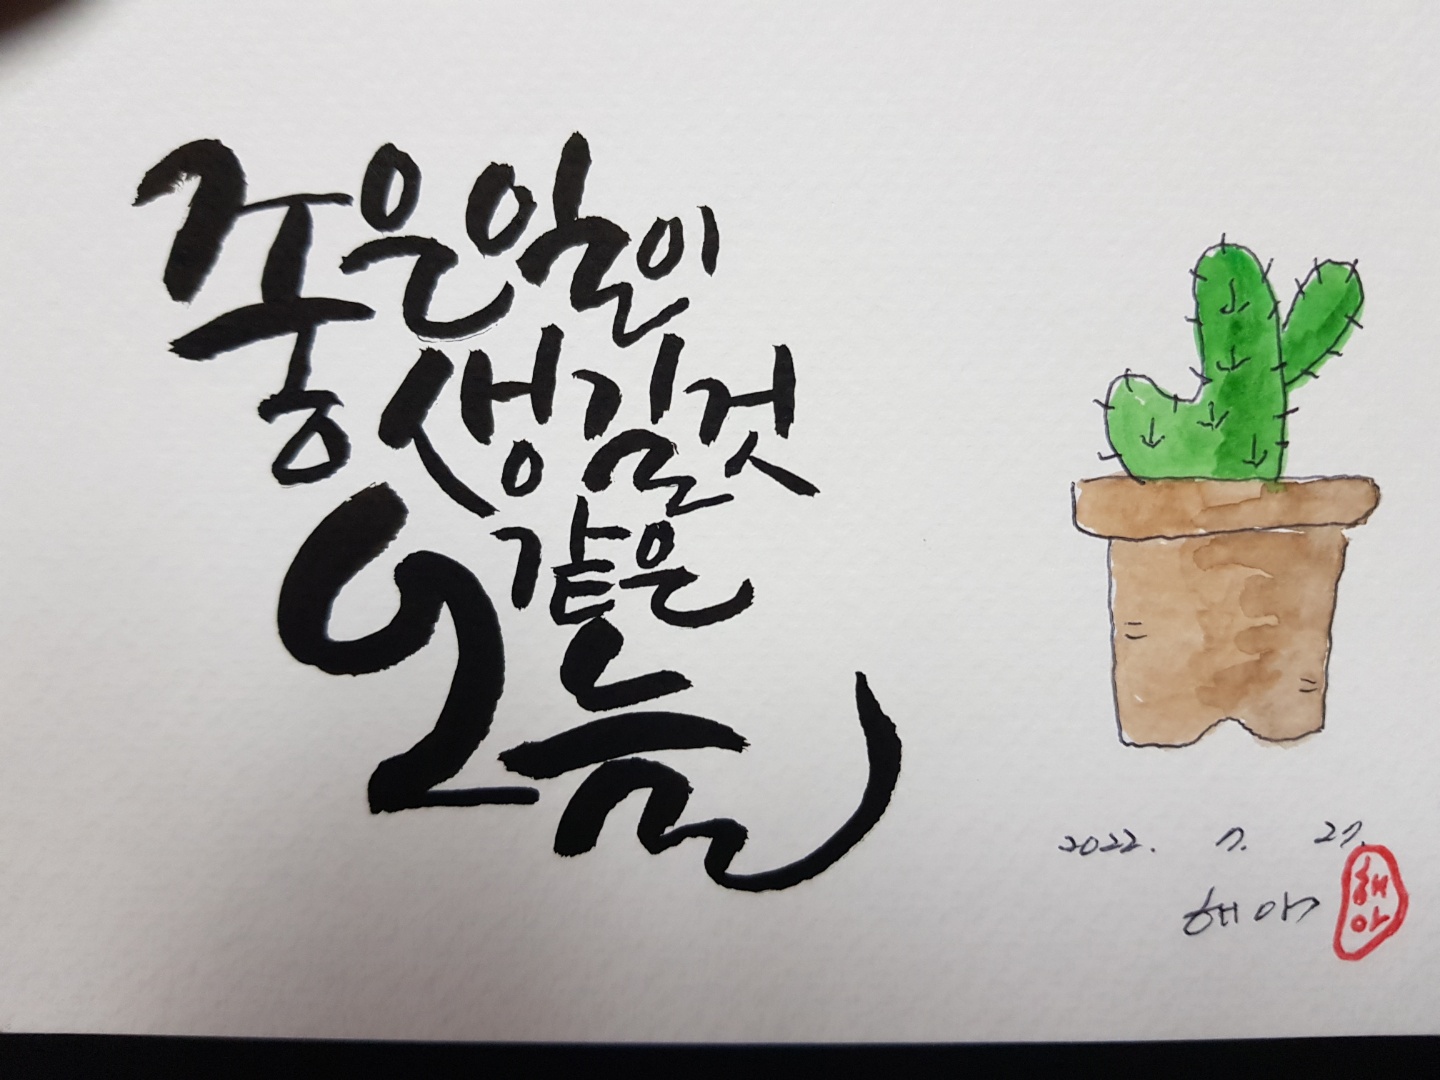 좋은 일이
생길 것
같은
오늘
2022. 7. 27.
해아
해아